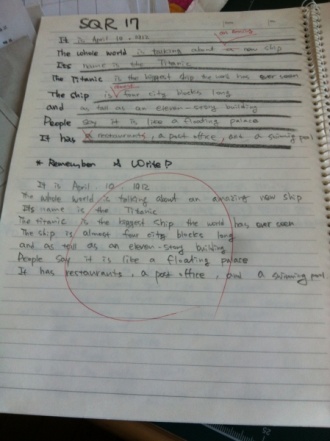 SQR 17
It is April 10, 1912
The whole world is talking about a new ship
Its name is the Titanic
The Titanic is the biggest ship the world has ever seen
The ship is four city blocks long
and as tall as an eleven-story building
People say it is like a floating palace
It has restaurants, a post office, and a swimming pool
* Remember & Write
It is April 10, 1912
The whole world is talking about an amazing new ship
Its name is the Titanic
The titanic is the biggest ship the world has ever seen
The ship is almost four city blocks long
and as tall as an eleven-story building
People say it is like a floating palace
It has restaurants, a post office, and a swimming pool